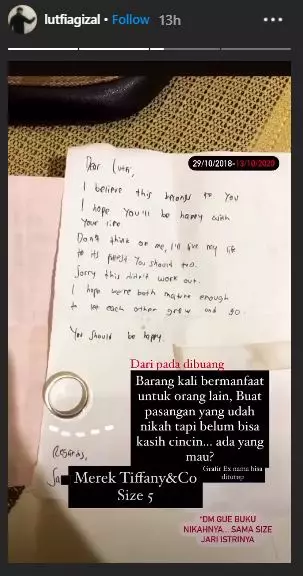 lutfiagizal • Follow 13h
Dear Lutfi,
29/10/2018-13/10/2020
I believe this belongs to you
I hope you'll be happy with
your life
Don't think on me, I'll live my life
to its fullest you should too.
Sorry this didn't work out.
I hope we're both mature enough
to let each other grow and go.
You should be happy.
Dari pada dibuang
Barang kali bermanfaat
untuk orang lain, Buat
pasangan yang udah
nikah tapi belum bisa
kasih cincin... ada yang
mau?
Gratis Ex nama bisa
ditutup
Regards,
Sa
Merek Tiffany&Co
Size 5
*DM GUE BUKU
NIKAHNYA... SAMA SIZE
JARI ISTRINYA